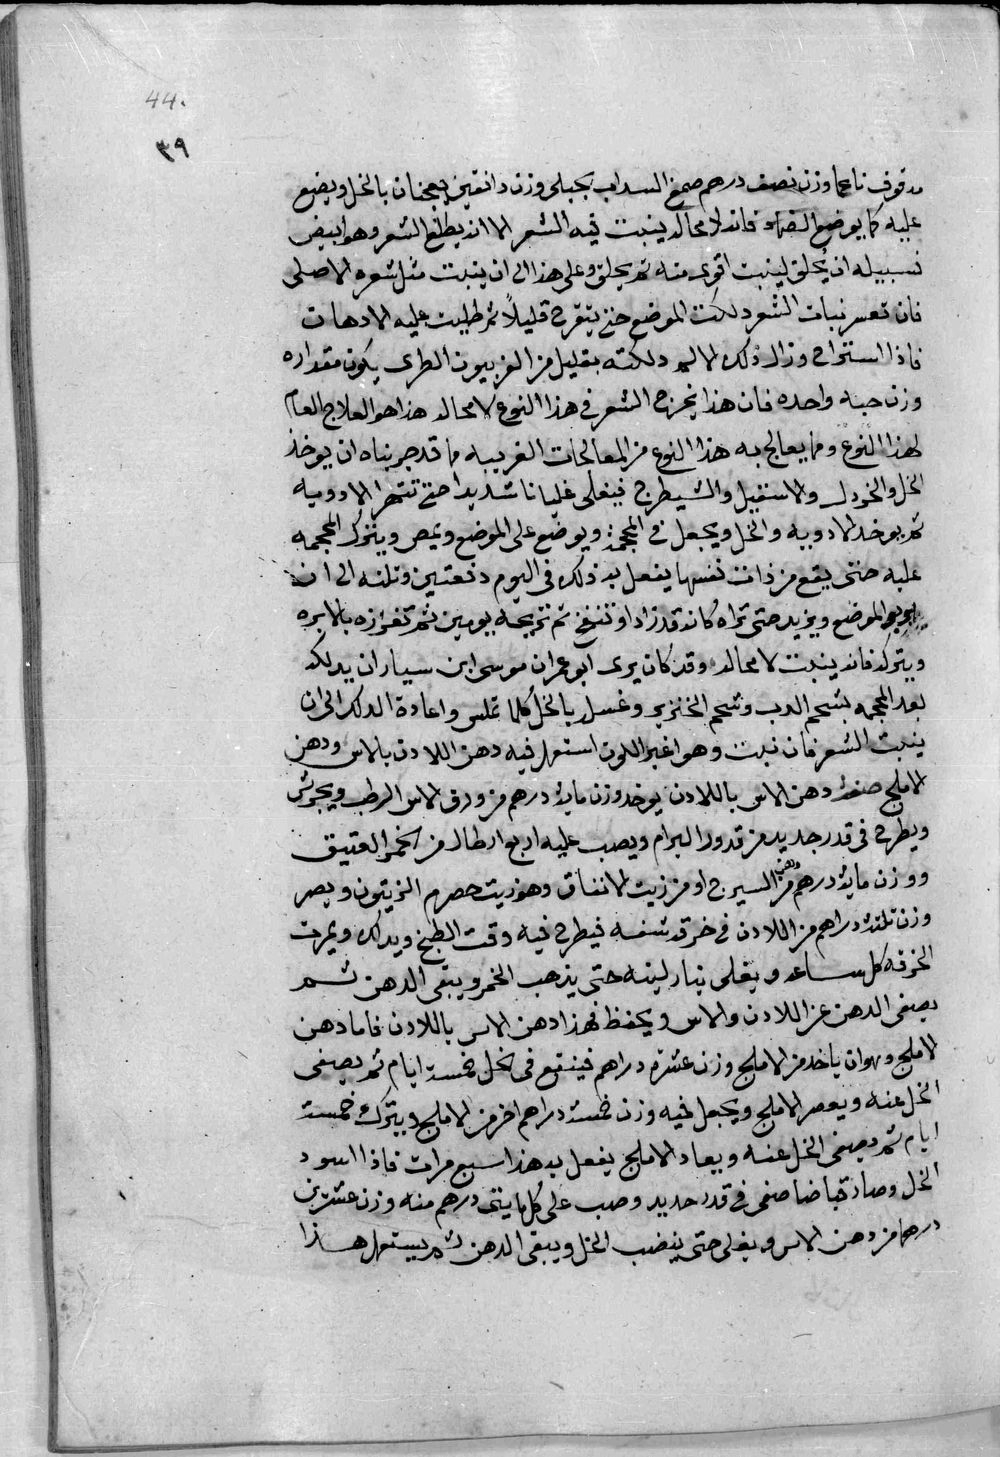 44.
٣٩
مدقوق ناعما وزن نصف درهم صمغ السداب الجبلى وزن دانقين يعجنان بالخل ويضع
عليه كما يوضع الضماد فانه لا محاله ينبت فيه الشعر الا انه يطلع الشعر وهو ابيض
فسبيله ان يُحلق لينبت اقوى منه ثم يحلق وعلى هذا الى ان ينبت مثل شعره الاصلى
فان تعسر نبات الشعر دلكت الموضع حتى يتقرح قليلاً ثم طليت عليه الادهان
فاذا استراح وزال ذلك الالم دلكته بقليل من الفربيون الطرى يكون مقداره
وزن حبه واحده فان هذا يخرج الشعر فى هذا النوع لا محاله هذا هو العلاج العام
لهذا النوع ومما يعالج به هذا النوع من المعالجات الغريبه مما قد جربناه ان يوخذ
الخل والخردل والاسقيل والشيطرج فيغلى غليانا شديدا حتى تتهرا الادويه
ثم يوخذ الادويه والخل ويجعل فى المحجمة ويوضع على الموضع ويمص ويترك المحجمه
عليه حتى يقع من ذات نفسها يفعل به ذلك فى اليوم دفعتين وثلثه الى ان
يربو الموضع ويزيد حتى تراه كانه قد زاد او تنفخ ثم تريحه يومين ثم تغرزه بالابره
ويترك فانه ينبت لا محاله وقد كان يرى ابو عمران موسى ابن سيار ان يدلكه
بعد المحجمه بشحم الدب وشحم الخنزير وغسل بالخل كلما تملس واعادة الدلك الى ان
ينبت الشعر فان نبت وهو اغبر اللون استعمل فيه دهن اللادن بالاس ودهن
الاملج صفة دهن الاس باللادن يوخذ وزن ماية درهم من ورق الاس الرطب ويجرش
ويطرح فى قدر جديد من قدور البرام ويصب عليه اربع ارطال من الخمر العتيق
ووزن ماية درهم من دهن السيرج او من زيت الانفاق وهو زيت حصرم الزيتون ويصر
وزن ثلثة دراهم من اللادن فى خرقه شفه فيطرح فيه وقت الطبخ ويدلك ويمرت
الخرقه كل ساعه ويغلى بنار لينه حتى يذهب الخمر ويبقى الدهن ثم
يصفى الدهن عن اللادن والاس ويحفظ فهذا دهن الاس باللادن فاما دهن
الاملج وهو ان ياخذ من الاملج وزن عشرة دراهم فينقع فى خل خمسة ايام ثم يصفى
الخل عنه ويعصر الاملج ويجعل فيه وزن خمسة دراهم اخر من الاملج ويترك خمسة
ايام ثم يصفى الخل عنه ويعاد الاملج يفعل به هذا سبع مرات فاذا اسود
الخل وصار قباضا صفى فى قدر حديد وصب على كل مايتى درهم منه وزن عشرين
درهما من دهن الاس ويغلى حتى ينضب الخل ويبقى الدهن ثم يستعمل هذا